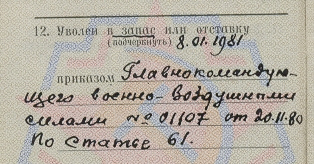 12. Уволен в запас или отставку
(подчеркнуть) 8.01.1981
приказом Главнокомандую-
щего военно-воздушными
силами №01107 от 20.11.80
По статье 61.